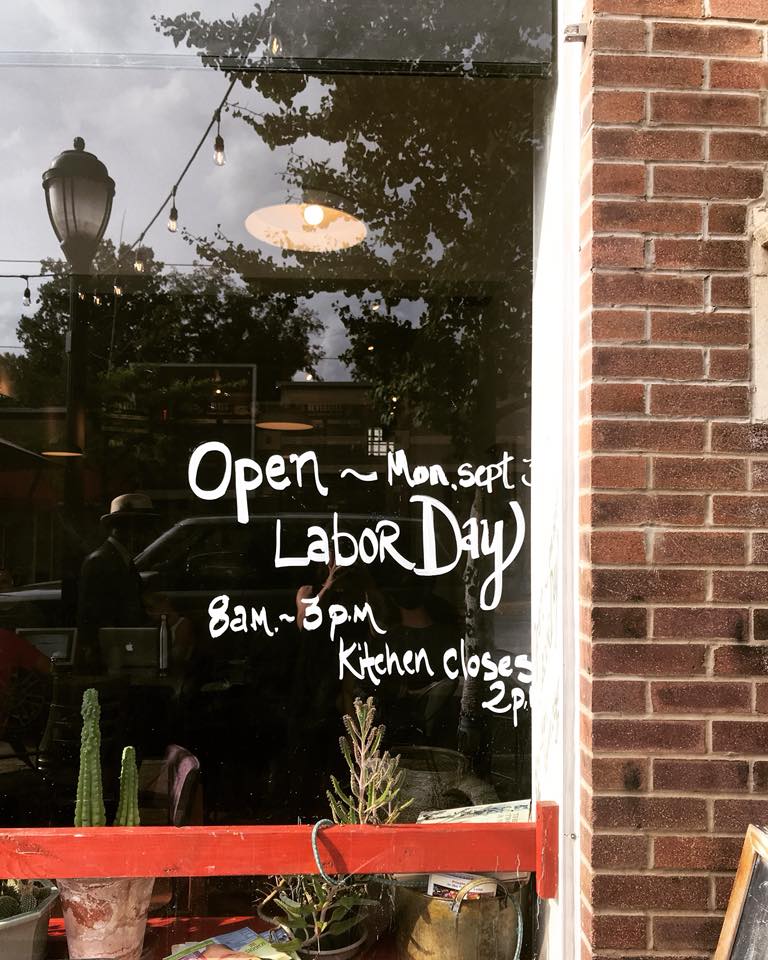 Open ~ Mon. sept 3
Labor Day)
8am.~3p.m
Kitchen closes
2p.